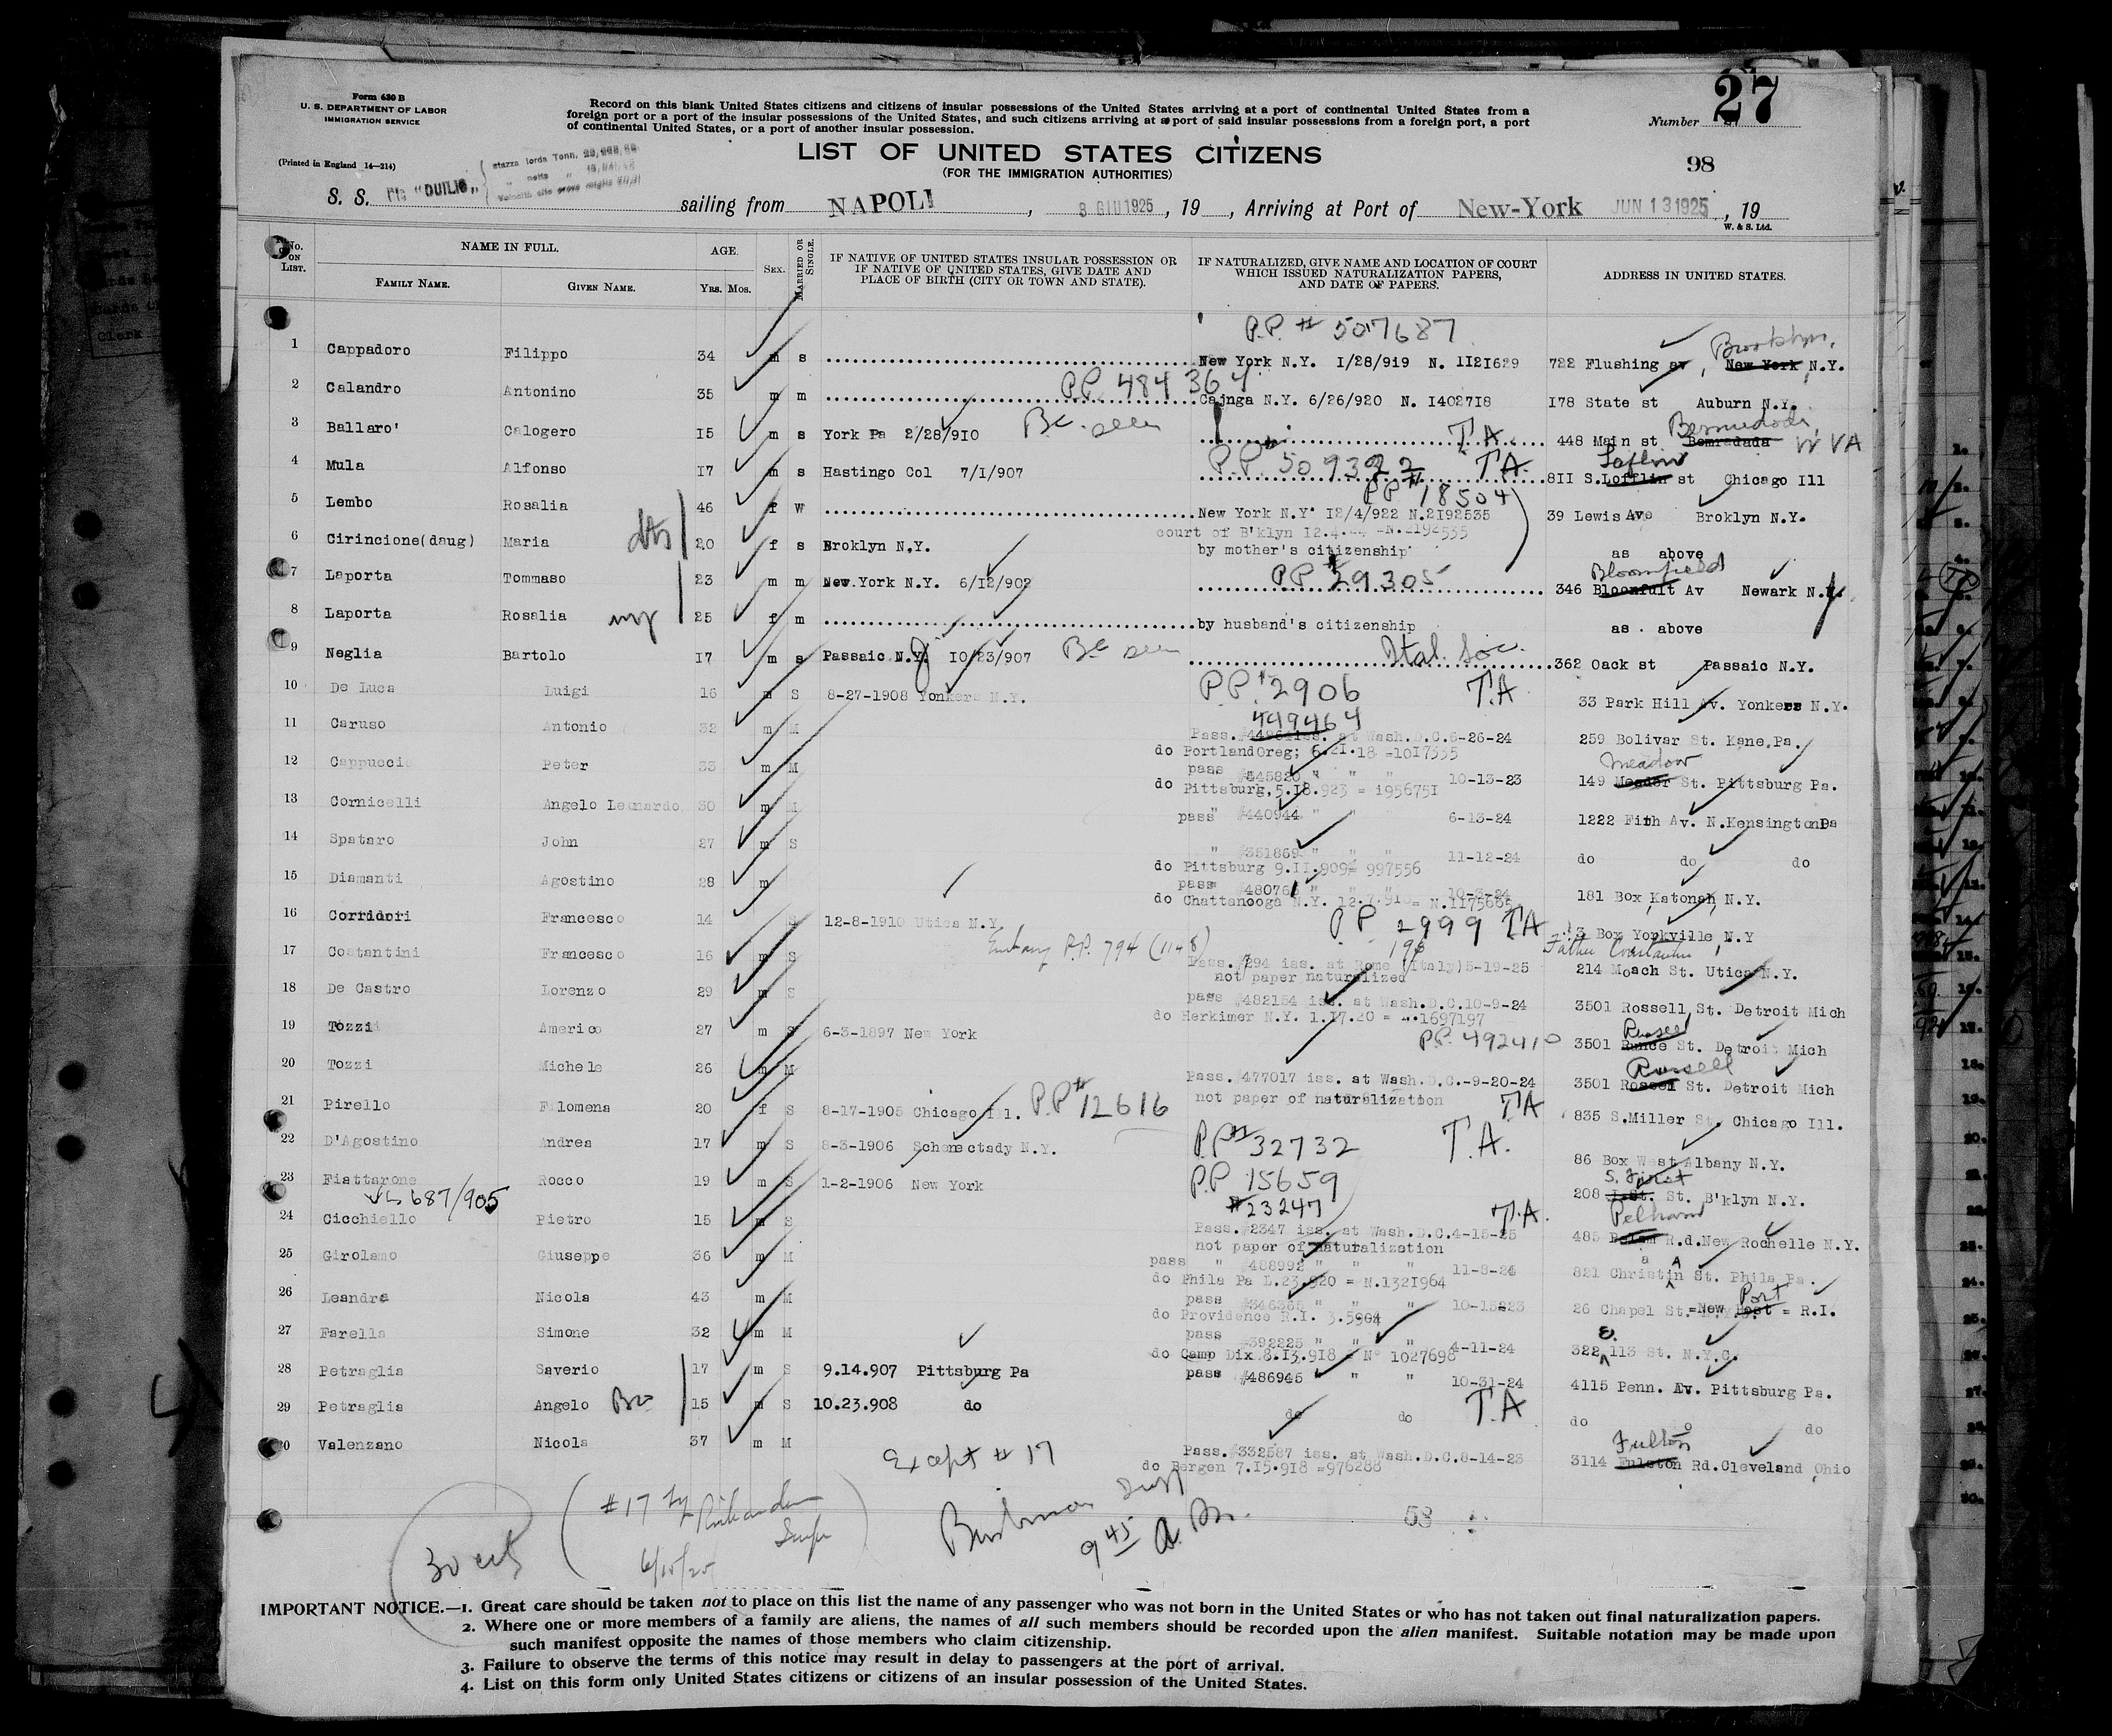 Form 630 B
U. S. DEPARTMENT OF LABOR
IMMIGRATION SERVICE
(Printed in England 14—214)
Record on this blank United States citizens and citizens of insular possessions of the United States arriving at a port of continental United States from a
foreign port or a port of the insular possessions of the United States, and such citizens arriving at a port of said insular possessions from a foreign port, a port
of continental United States, or a port of another insular possession.
27
Number
LIST OF UNITED STATES CITIZENS
(FOR THE IMMIGRATION AUTHORITIES)
98
S. S. "DUILIO" sailing from NAPOLI, 3 GIU 1925, 19 , Arriving at Port of New-York JUN 13 1925, 19
W. & S. Ltd.
No. ON LIST. NAME IN FULL. AGE. SEX. MARRIED OR SINGLE. IF NATIVE OF UNITED STATES INSULAR POSSESSION OR IF NATIVE OF UNITED STATES, GIVE DATE AND PLACE OF BIRTH (CITY OR TOWN AND STATE). IF NATURALIZED, GIVE NAME AND LOCATION OF COURT WHICH ISSUED NATURALIZATION PAPERS, AND DATE OF PAPERS. ADDRESS IN UNITED STATES.
FAMILY NAME. GIVEN NAME. YRS. MOS.
P.P. # 507687
1 Cappadoro Filippo 34 m s New York N.Y. 1/28/919 N. 1121629 722 Flushing av, New York N.Y. Brooklyn,
PP 484364
2 Calandro Antonino 35 m m Cajnga N.Y. 6/26/920 N. 1402718 178 State st Auburn N.Y.
3 Ballaro' Calogero 15 m s York Pa 2/28/910 B.C. seen T A 448 Main st Bomradada W VA
4 Mula Alfonso 17 m s Hastingo Col 7/1/907 P.P. 509322 T A 811 S. Lofflin st Laflin Chicago Ill
PP # 18504
5 Lembo Rosalia 46 f W New York N.Y. 12/4/922 N.2192535 39 Lewis Ave Broklyn N.Y.
court of B'klyn
6 Cirincione(daug) Maria 20 f s Broklyn N.Y. by mother's citizenship as above
7 Laporta Tommaso 23 m m New York N.Y. 6/12/902 PP # 29305 346 Bloonfult Av Bloomfield Newark N.
8 Laporta Rosalia 25 f m by husband's citizenship as above
9 Neglia Bartolo 17 m s Passaic N. 10/23/907 BC seen Ital. Soc. 362 Oack st Passaic N.Y.
10 De Luca Luigi 16 m S 8-27-1908 Yonkers N.Y. P.P. # 2906 T.A 33 Park Hill Av. Yonkers N.Y.
449464
11 Caruso Antonio 32 m M Pass. iss. at Wash.D.C.6-26-24 259 Bolivar St. Kane,Pa.
do Portland Oreg; 6.21.18 =1017335
12 Cappuccio Peter 33 m M pass #445820 " " " 10-13-23 149 Meador St. Meadow Pittsburg Pa.
do Pittsburg,5.18.923 = 1956751
13 Cornicelli Angelo Leonardo 30 m M pass #440944 " " 6-13-24 1222 Fith Av. N.Kensington Pa
14 Spataro John 27 m S " #351869 " " " 11-12-24 do do do
do Pittsburg 9.11.909= 997556
15 Diamanti Agostino 28 m pass " " " 10-3-24 181 Box Katonah N.Y.
do Chattanooga N.Y.
16 Corridori Francesco 14 S 12-8-1910 Utica N.Y. P P 2999 TA 3 Box Yorkville N.Y
Embassy P.P. 794 (1148)
17 Costantini Francesco 16 m S iss. at Rome (Italy)5-19-25 214 Moach St. Utica N.Y.
not paper naturalized
18 De Castro Lorenzo 29 m S pass #482154 iss. at Wash.D.C.10-9-24 3501 Rossell St. Detroit Mich
do Herkimer N.Y. 1.17.20 = 1697197
19 Tozzi Americo 27 m S 6-3-1897 New York P.P. 492410 3501 St. Detroit Mich
20 Tozzi Michele 26 m M Pass. #477017 iss. at Wash.D.C.-9-20-24 3501 St. Russell Detroit Mich
not paper of naturalization
21 Pirello Filomena 20 f S 8-17-1905 Chicago Ill. P.P # 12616 T A 835 S.Miller St. Chicago Ill.
22 D'Agostino Andrea 17 m S 8-3-1906 Schenectady N.Y. P.P # 32732 T.A. 86 Box West Albany N.Y.
23 Fiattarone Rocco 19 m S 1-2-1906 New York P.P. 15659 208 St. S. First B'klyn N.Y.
687/905
#23247
24 Cicchiello Pietro 15 m S Pass. #2347 iss. at Wash.D.C.4-15-25 T.A. 485 Pelham R.d.New Rochelle N.Y.
not paper of naturalization
25 Girolamo Giuseppe 36 m M pass " #488992 " " 11-8-24 821 Christin St. Phila Pa.
do Phila Pa L.23.920 = N.1321964
26 Leandra Nicola 43 m M pass " " " 26 Chapel St.=New Port = R.I.
do Providence R.I. 3.5904
27 Farella Simone 32 m M pass #392225 " " " 4-11-24 322 E. 113 St. N.Y.C.
do Camp Dix 8.13.918 = N° 1027698
28 Petraglia Saverio 17 m S 9.14.907 Pittsburg Pa pass #486945 " " 10-31-24 4115 Penn. Av. Pittsburg Pa.
29 Petraglia Angelo Bro 15 m S 10.23.908 do do do T.A do do do
30 Valenzano Nicola 37 m M Pass. #332587 iss. at Wash.D.C.8-14-23 3114 Fulston Rd. Fulton Cleveland Ohio
do Bergen 7.15.918 =976288
Except # 17
Insp
9 45 a m.
53
30
(#17 by
6/15/25
IMPORTANT NOTICE.—1. Great care should be taken not to place on this list the name of any passenger who was not born in the United States or who has not taken out final naturalization papers.
2. Where one or more members of a family are aliens, the names of all such members should be recorded upon the alien manifest. Suitable notation may be made upon
such manifest opposite the names of those members who claim citizenship.
3. Failure to observe the terms of this notice may result in delay to passengers at the port of arrival.
4. List on this form only United States citizens or citizens of an insular possession of the United States.